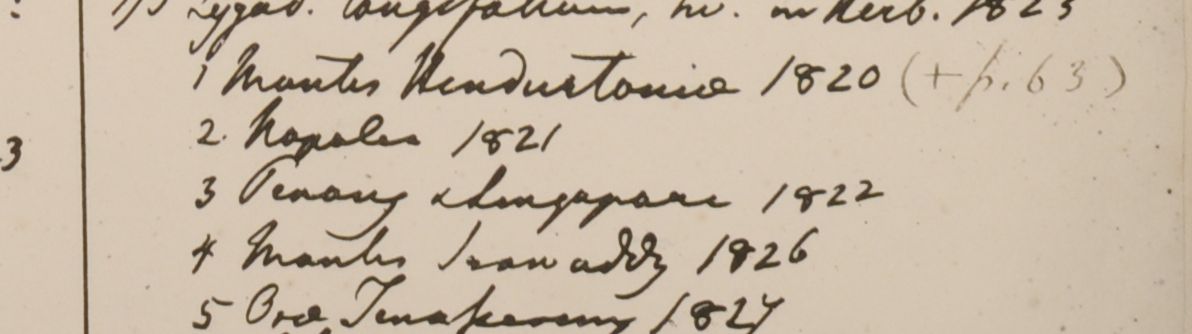 Lygod. longifolium, hr. in Herb. 1823
1 Montes Hindustaniae 1820 (+ p. 63)
3
2. Napalia 1821
3 Penang & Singapore 1822
4 Montes Irawaddy 1826
5 Ora Tenasserim 1827